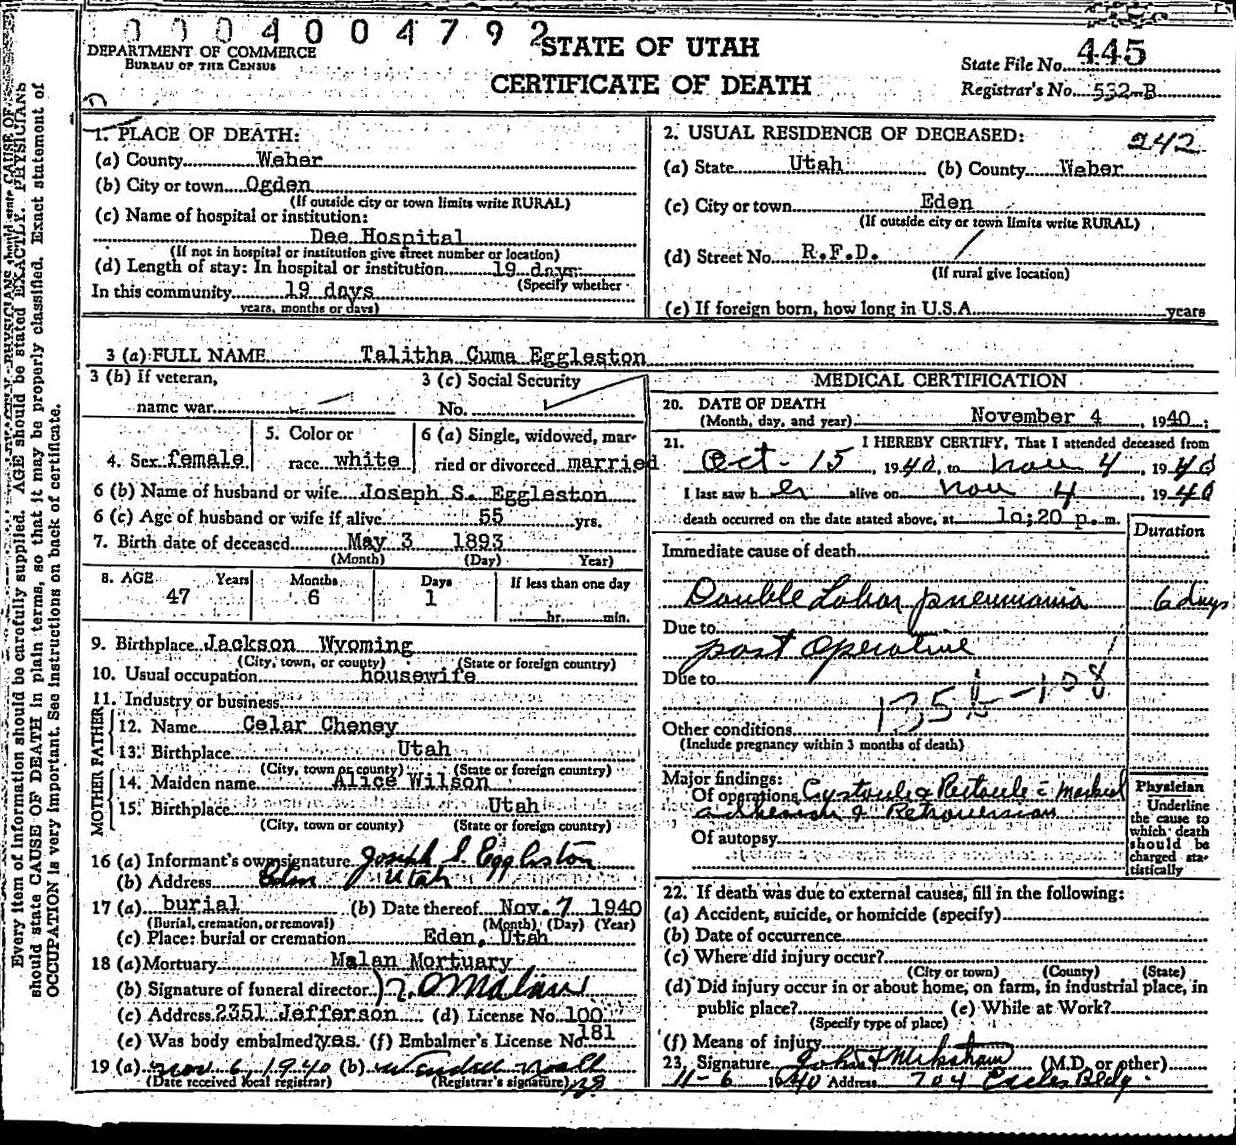 0004004792
DEPARTMENT OF COMMERCE
BUREAU OF THE CENSUS
STATE OF UTAH
CERTIFICATE OF DEATH
State File No. 445
Registrar's No. 532-B
1. PLACE OF DEATH:
(a) County Weber
(b) City or town Ogden
(If outside city or town limits write RURAL)
(c) Name of hospital or institution:
Dee Hospital
(If not in hospital or institution give street number or location)
(d) Length of stay: In hospital or institution 19 days
(Specify whether
In this community 19 days
years, months or days)
2. USUAL RESIDENCE OF DECEASED:
242
(a) State Utah (b) County Weber
(c) City or town Eden
(If outside city or town limits write RURAL)
(d) Street No. R.F.D.
(If rural give location)
(e) If foreign born, how long in U.S.A. years
3 (a) FULL NAME Talitha Cuma Eggleston
3 (b) If veteran,
name war
3 (c) Social Security
No.
4. Sex female
5. Color or
race white
6 (a) Single, widowed, mar-
ried or divorced married
6 (b) Name of husband or wife Joseph S. Eggleston
6 (c) Age of husband or wife if alive 55 yrs.
7. Birth date of deceased May 3 1893
(Month) (Day) Year)
8. AGE Years Months Days If less than one day
47 6 1 hr. min.
9. Birthplace Jackson Wyoming
(City, town, or county) (State or foreign country)
10. Usual occupation housewife
11. Industry or business
FATHER
12. Name Celar Cheney
13. Birthplace Utah
(City, town or county) (State or foreign country)
MOTHER
14. Maiden name Alice Wilson
15. Birthplace Utah
(City, town or county) (State or foreign country)
16 (a) Informant's own signature Joseph S Eggleston
(b) Address Utah
17 (a) burial (b) Date thereof Nov. 7 1940
(Burial, cremation, or removal) (Month) (Day) (Year)
(c) Place: burial or cremation Eden, Utah
18 (a) Mortuary Malan Mortuary
(b) Signature of funeral director Malan
(c) Address 2351 Jefferson (d) License No. 100
(e) Was body embalmed yes. (f) Embalmer's License No. 181
19 (a) Nov. 6, 1940 (b)
(Date received local registrar) (Registrar's signature)
MEDICAL CERTIFICATION
20. DATE OF DEATH
(Month, day, and year) November 4, 1940;
21. I HEREBY CERTIFY, That I attended deceased from
Oct-15, 1940, to Nov 4, 1940
I last saw her alive on Nov 4, 1940
death occurred on the date stated above, at 10;20 p.m.
Duration
Immediate cause of death
Double Lobar pneumonia 6 days
Due to
post operative
Due to
135b-108
Other conditions
(Include pregnancy within 3 months of death)
Major findings:
Of operations Cystocele & Rectocele c marked
adhesions & Retroversion
Of autopsy
Physician
Underline
the cause to
which death
should be
charged sta-
tistically
22. If death was due to external causes, fill in the following:
(a) Accident, suicide, or homicide (specify)
(b) Date of occurrence
(c) Where did injury occur?
(City or town) (County) (State)
(d) Did injury occur in or about home, on farm, in industrial place, in
public place? (e) While at Work?
(Specify type of place)
(f) Means of injury
23. Signature (M.D. or other)
11-6 1940 Address 704 Eccles Bldg.
Every item of information should be carefully supplied. AGE should be stated EXACTLY. PHYSICIANS
should state CAUSE OF DEATH in plain terms, so that it may be properly classified. Exact statement of
OCCUPATION is very important. See instructions on back of certificate.